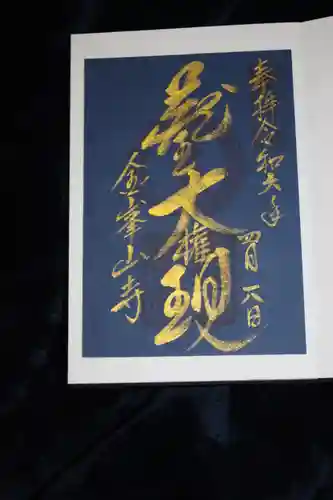 奉拝 令和六年
四月八日
蔵王大権現
金峯山寺